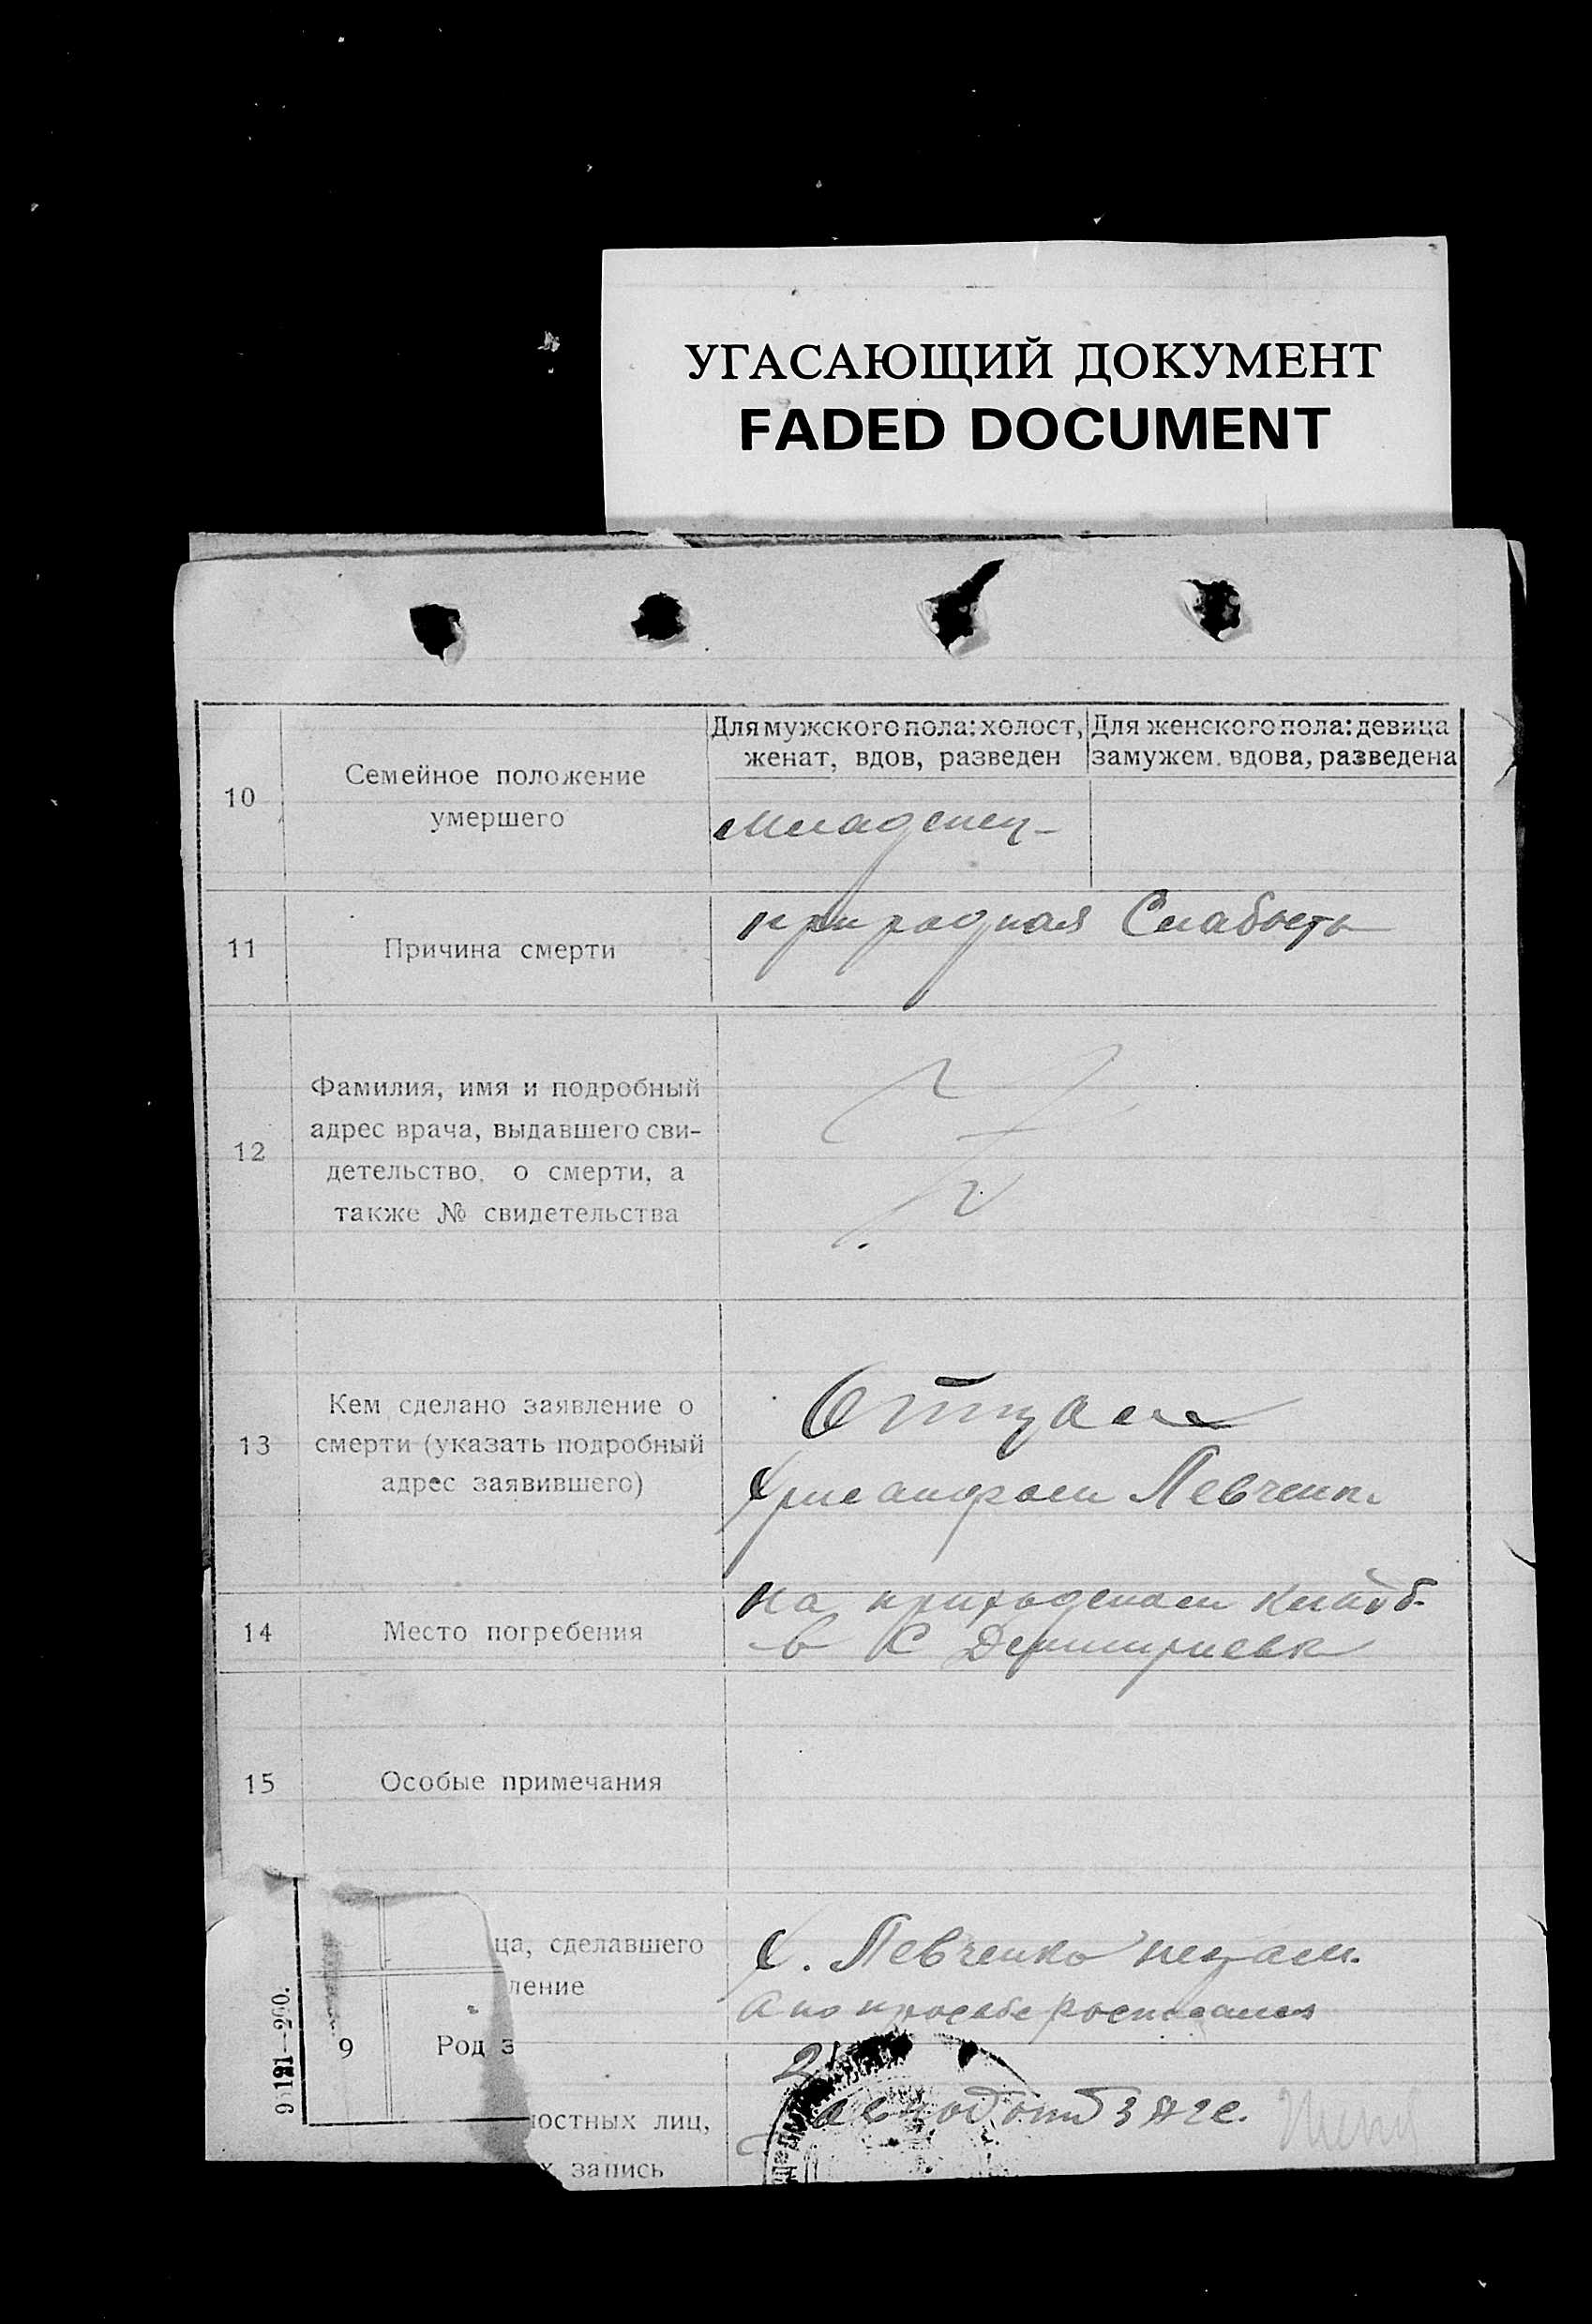 УГАСАЮЩИЙ ДОКУМЕНТ
FADED DOCUMENT
10
Семейное положение
умершего
Для мужского пола: холост,
женат, вдов, разведен
Для женского пола: девица
замужем, вдова, разведена
Младенец
11
Причина смерти
природная Слабость
12
Фамилия, имя и подробный
адрес врача, выдавшего сви-
детельство, о смерти, а
также № свидетельства
13
Кем сделано заявление о
смерти (указать подробный
адрес заявившего)
Отцом
Хрисанфом Левченк.
14
Место погребения
на приходском кладб.
в С Дмитриевк
15
Особые примечания
ца, сделавшего
ление
Х. Левченко неграм.
А по просьбе росписался
9
Род з
ностных лиц,
х запись
ЗАГС.